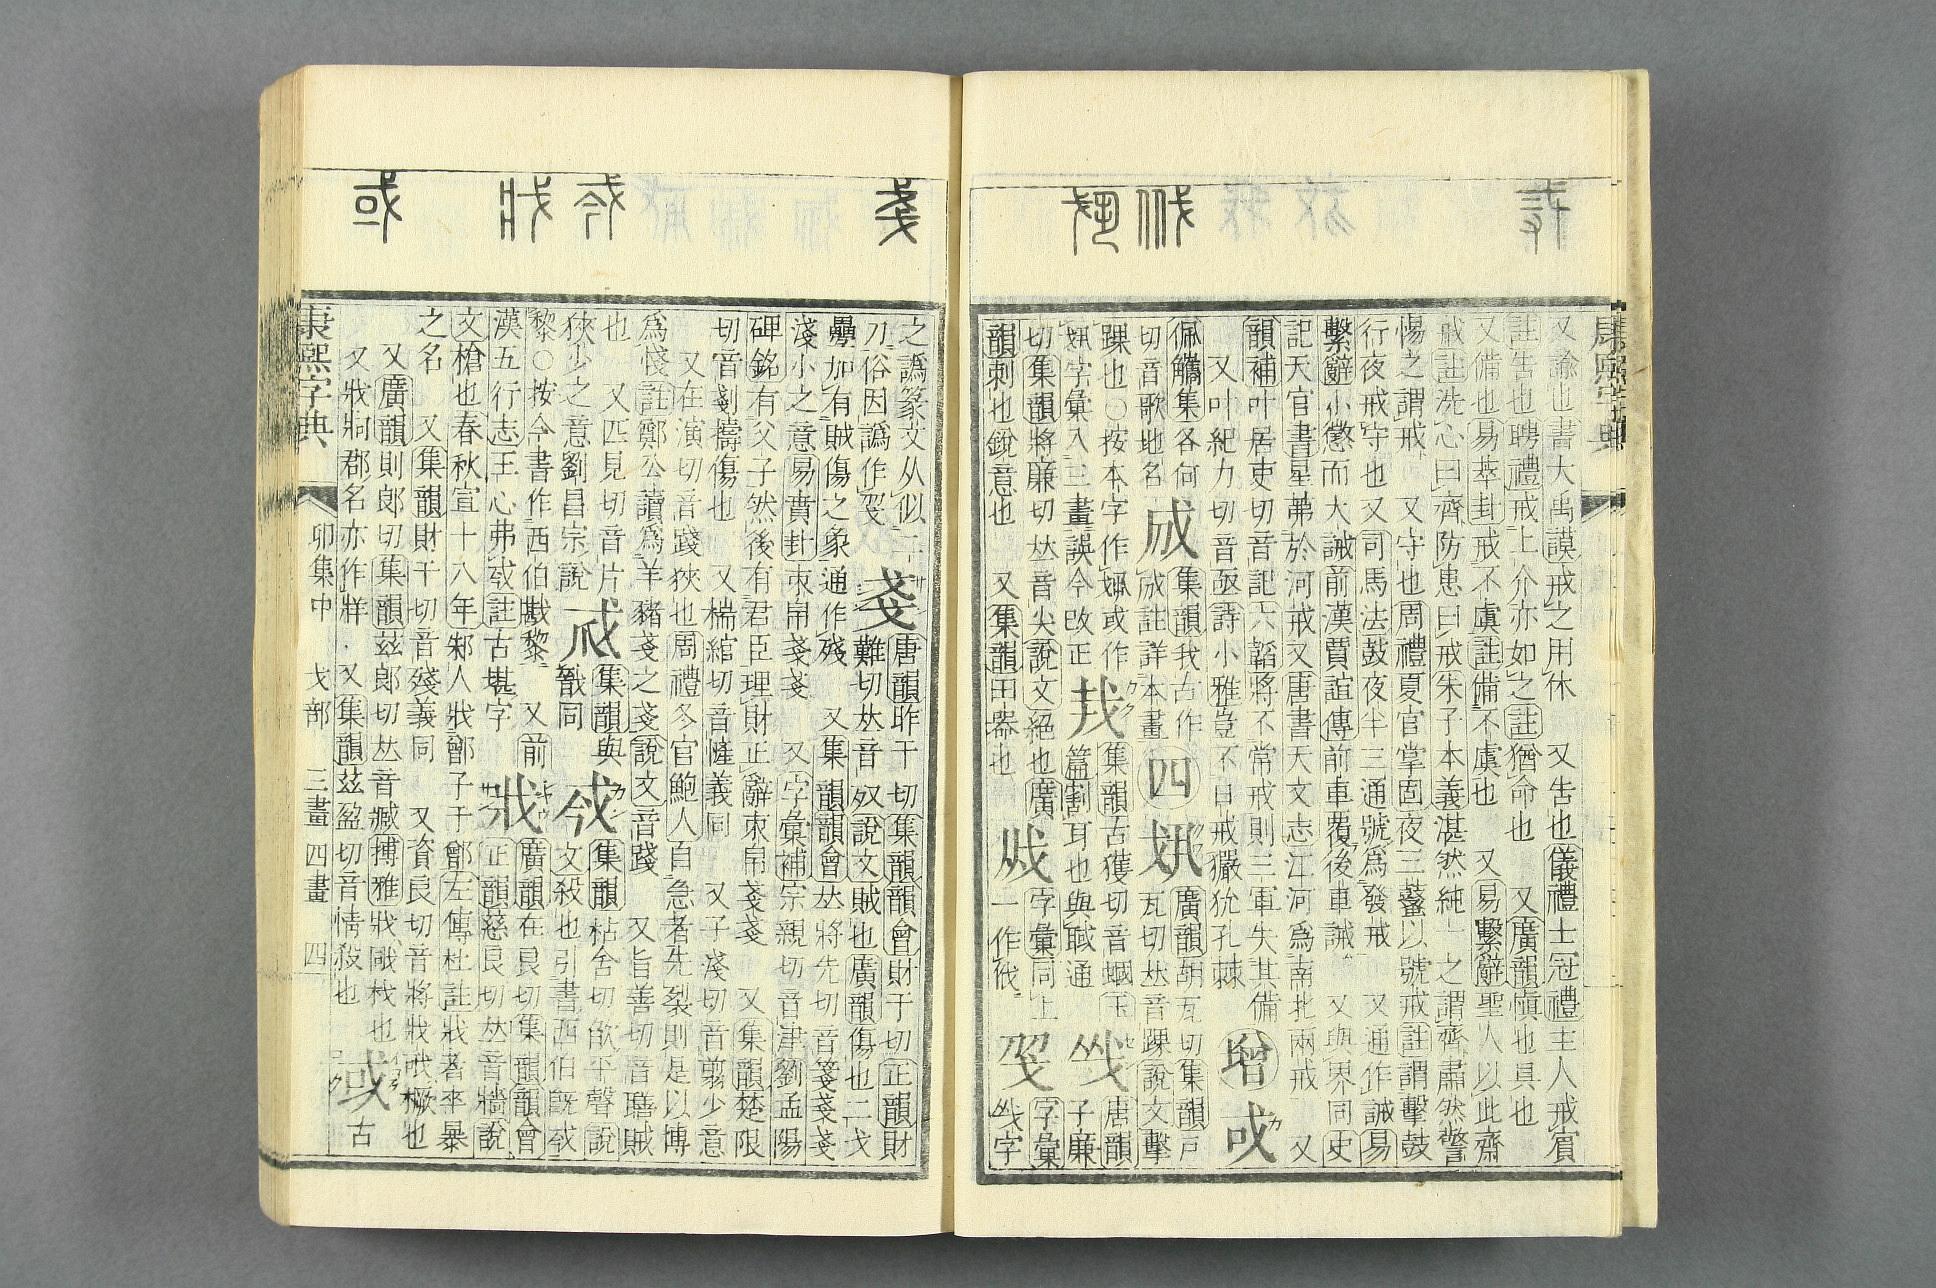 又諭也書大禹謨戒之用休 又告也儀禮士冠禮主人戒賓
註告也聘禮戒上介亦如之註猶命也 又廣韻愼也具也
又備也易萃卦戒不虞註備不虞也 又易繫辭聖人以此齋
戒註洗心曰齊防患曰戒朱子本義湛然純一之謂齊肅然警
惕之謂戒 又守也周禮夏官掌固夜三鼜以號戒註謂擊鼓
行夜戒守也又司馬法鼓夜半三通號爲發戒 又通作誡易
繫辭小懲而大誡前漢賈誼傳前車覆後車誡 又與界同史
記天官書星茀於河戒又唐書天文志江河爲南北兩戒 又
韻補叶居吏切音記六韜將不常戒則三軍失其備
又叶紀力切音亟詩小雅豈不日戒玁狁孔棘
增
佩觿集各何
切音歌地名
成
集韻我古作
成註詳本畫
四
廣韻胡瓦切集韻戸
瓦切𠀤音踝說文擊
踝也○按本字作 或作
字彙入三畫誤今改正
集韻古獲切音蟈玉
篇割耳也與聝通
唐韻
子廉
切集韻將廉切𠀤音尖說文絕也廣
韻刺也銳意也 又集韻田器也
字彙同上
一作
字彙
字
之譌篆文从
刀俗因譌作
戔
唐韻昨干切集韻韻會財干切正韻財
難切𠀤音奴說文賊也廣韻傷也二戈
疊加有賊傷之象通作殘 又集韻韻會𠀤將先切音箋戔戔
淺小之意易賁卦束帛戔戔 又字彙補宗親切音津劉孟陽
碑銘有父子然後有君臣理財正辭束帛戔戔 又集韻楚限
切音剗擣傷也 又楇綰切音嶘義同 又子淺切音翦少意
又在演切音踐狹也周禮冬官鮑人自急者先裂則是以博
爲帴註鄭公讀爲羊豬戔之戔說文音踐 又旨善切音𦗢賊
也 又匹見切音片
狹少之意劉昌宗說
集韻與
戩同
集韻枯含切歁平聲說
文殺也引書西伯旣
黎○按今書作西伯戡黎 又前
漢五行志王心弗 註古堪字
戕
廣韻在良切集韻韻會
正韻慈良切𠀤音牆說
文槍也春秋宣十八年邾人戕鄫子于鄫左傳杜註戕者卒暴
之名 又集韻財干切音殘義同 又資良切音將戕戕橛也
又廣韻則郞切集韻茲郞切𠀤音臧博雅戕 杙也
又戕牁郡名亦作牂 又集韻茲盈切音情殺也
或
古
康熙字典
卯集中 戈部 三畫 四畫 四